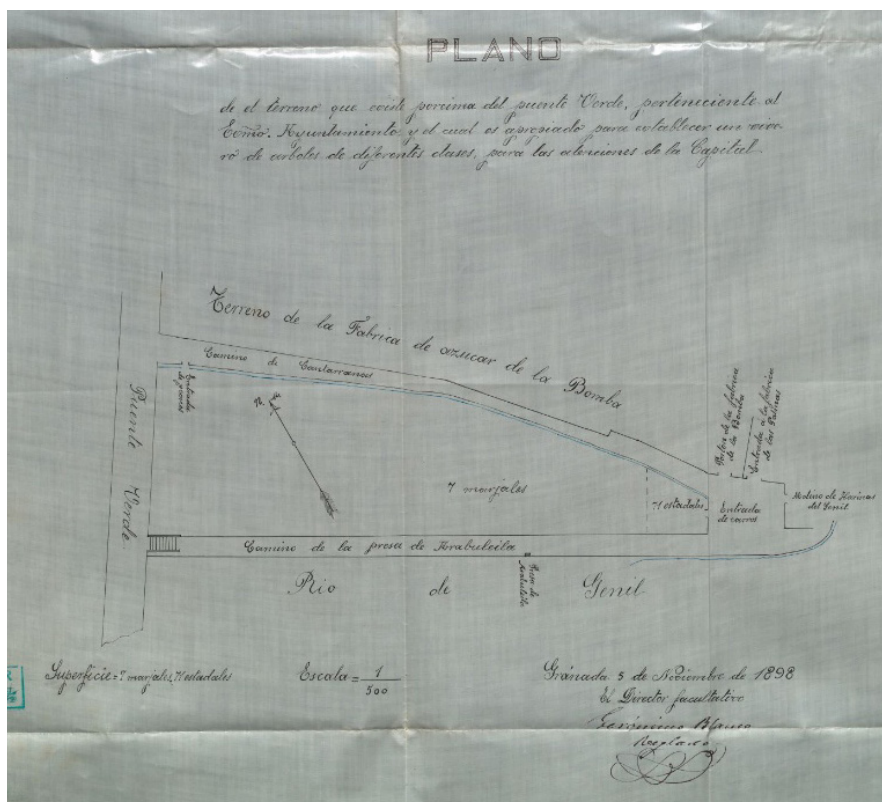 PLANO
de el terreno que existe porcima del puente Verde, perteneciente al
Exmo. Ayuntamiento y el cual es apropiado para establecer un vive-
ro de arboles de diferentes clases, para las atenciones de la Capital.
Terreno de la Fabrica de azucar de la Bomba
Camino de Cantarranas
Entrada de carros
Puente Verde
N.
7 marjales
71 estadales
Entrada
de carros
Porton de la fabrica
de la Bomba
Entrada á la fabrica
de las Palmas
Molino de Harinas
del Genil
Camino de la presa de Arabuleila
Presa de
Arabuleila
Rio de Genil
Superficie = 7 marjales 71 estadales
Escala = 1/500
Granada 5 de Noviembre de 1898
El Director facultativo
Gerónimo Blanco